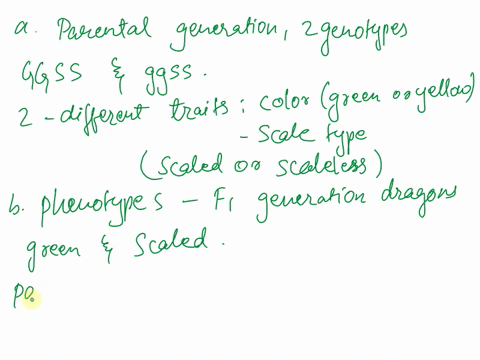 a. Parental generation, 2 genotypes
GGSS & ggss.
2 - different traits : color (green or yellow)
- Scale type
(Scaled or scaleless)
b. phenotypes - F1 generation dragons
green & Scaled.
po